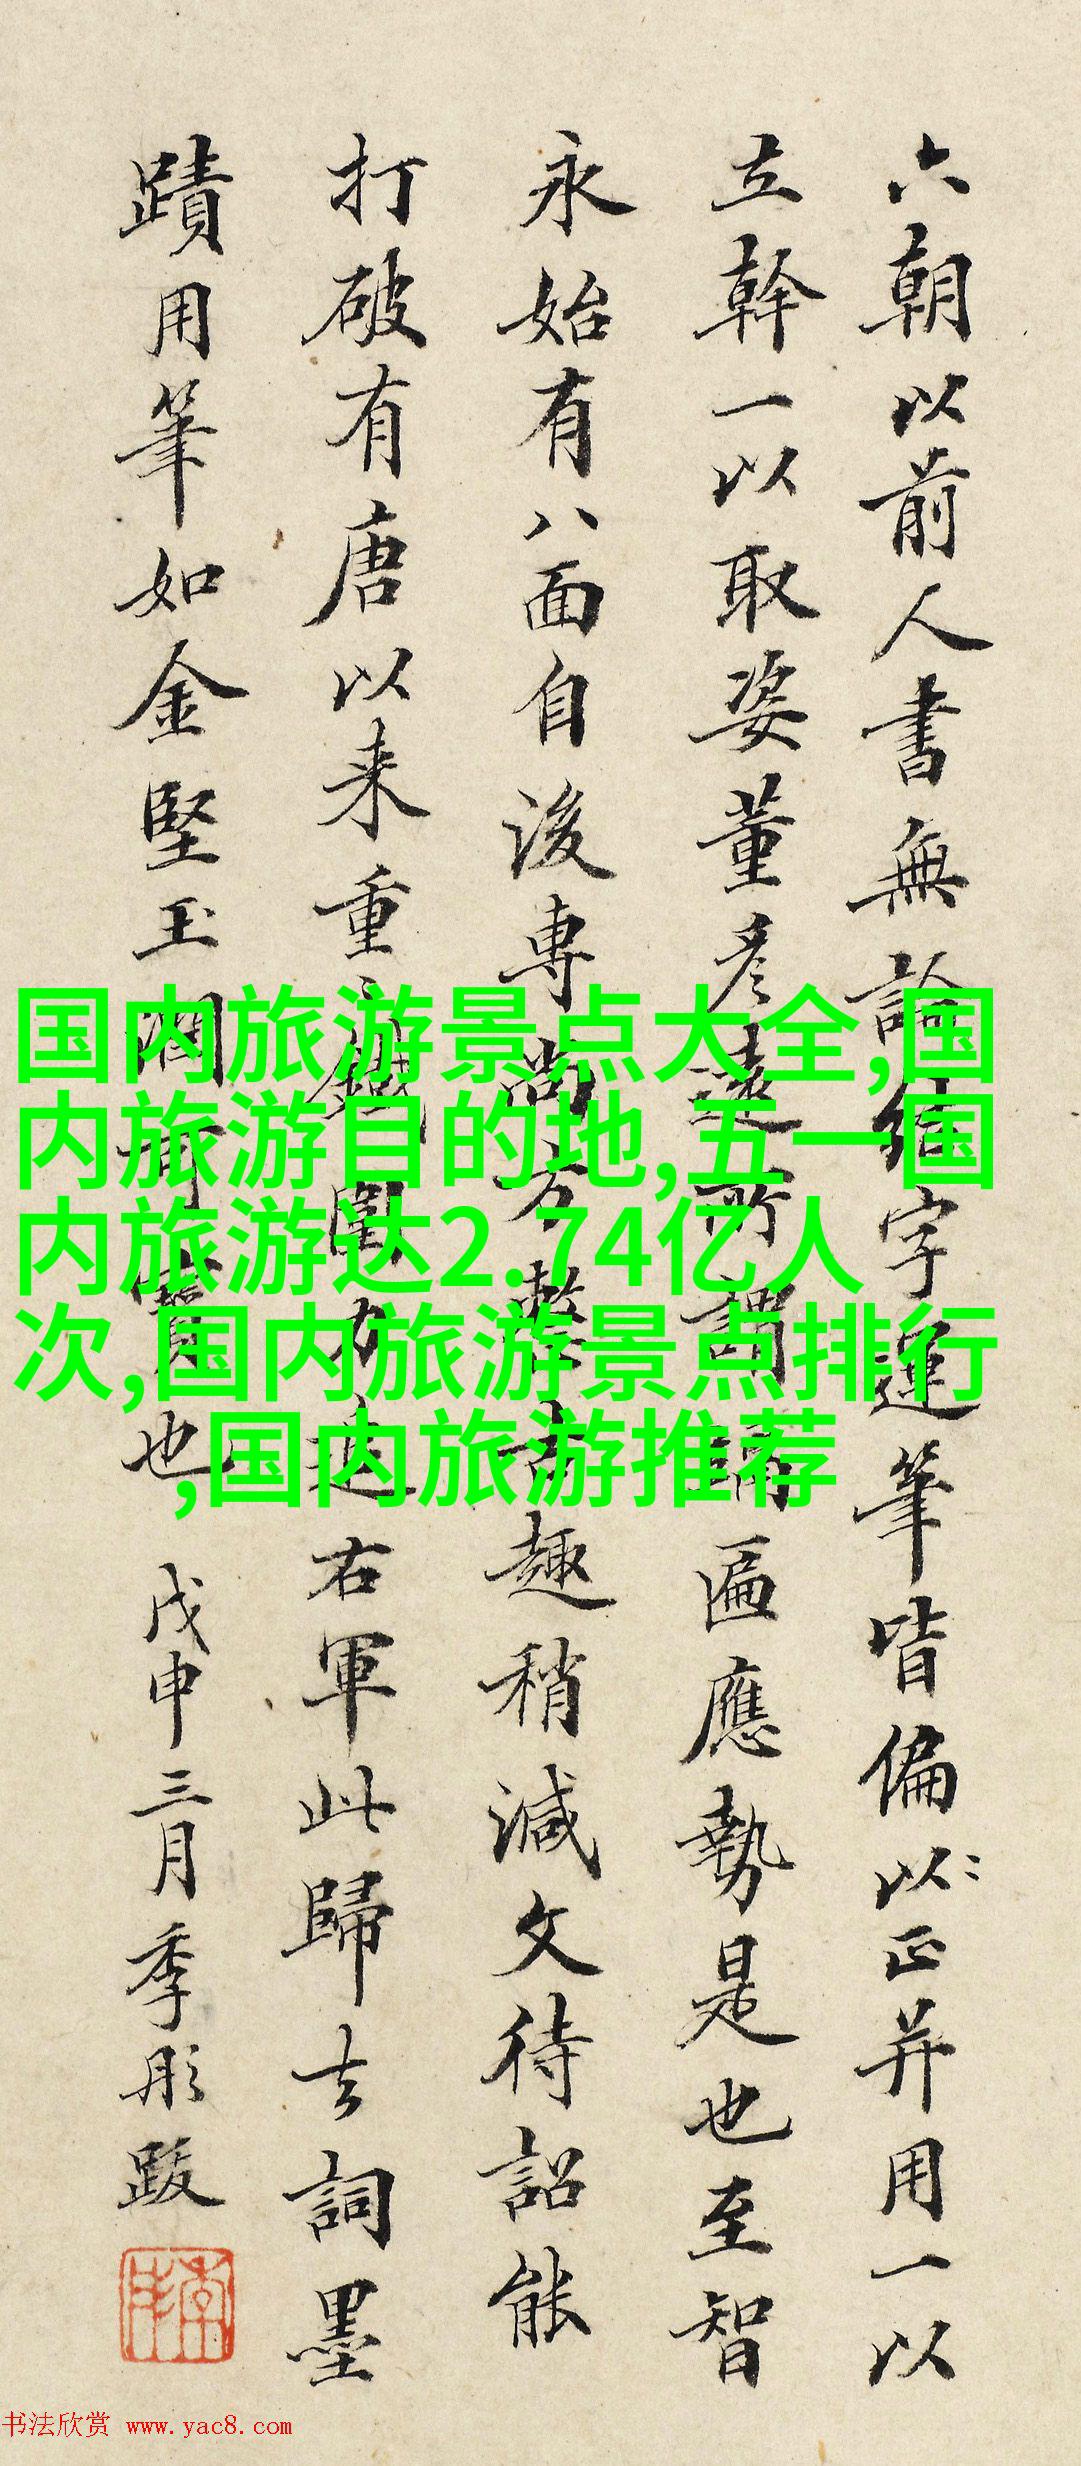 六朝以前人書無論結字運筆皆偏以正并用一以
立幹一以取姿董彦遠所謂匾應勢是也至智
永始有八面自後專尚方整古趣稍減文待詔能
打破有唐以来重〻鐵圍力追右軍此歸去詞墨
蹟用筆如金堅玉潤可寶也 戊申三月季彤跋
国内旅游景点大全,国
内旅游目的地,五一国
内旅游达2.74亿人
次,国内旅游景点排行
,国内旅游推荐
书法欣赏 www.yac8.com